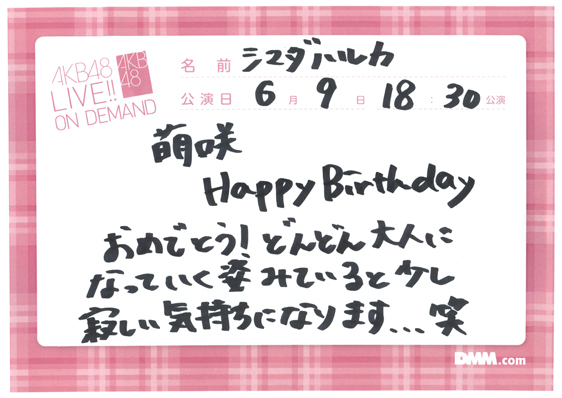 AKB48
LIVE!!
ON DEMAND
AKB
48
名前 シマダハルカ
公演日 6月9日 18:30公演
萌咲
Happy Birthday
おめでとう!どんどん大人に
なっていく姿みていると少し
寂しい気持ちになります...笑
DMM.com